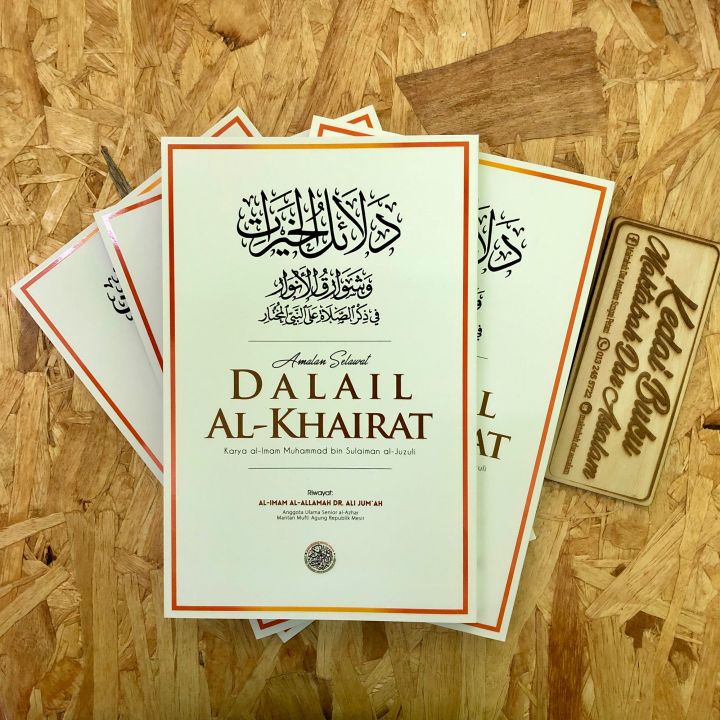 دَلَائِلُ الْخَيْرَاتِ
وَشَوَارِقُ الْأَنْوَارِ
فِي ذِكْرِ الصَّلَاةِ عَلَى النَّبِيِّ الْمُخْتَارِ
Amalan Selawat
DALAIL
AL-KHAIRAT
Karya al-Imam Muhammad bin Sulaiman al-Juzuli
Riwayat:
AL-IMAM AL-ALLAMAH DR. ALI JUM'AH
Anggota Ulama Senior al-Azhar
Mantan Mufti Agung Republik Mesir
Kedai Buku
Maktabah Dar Awalam
013 245 5772